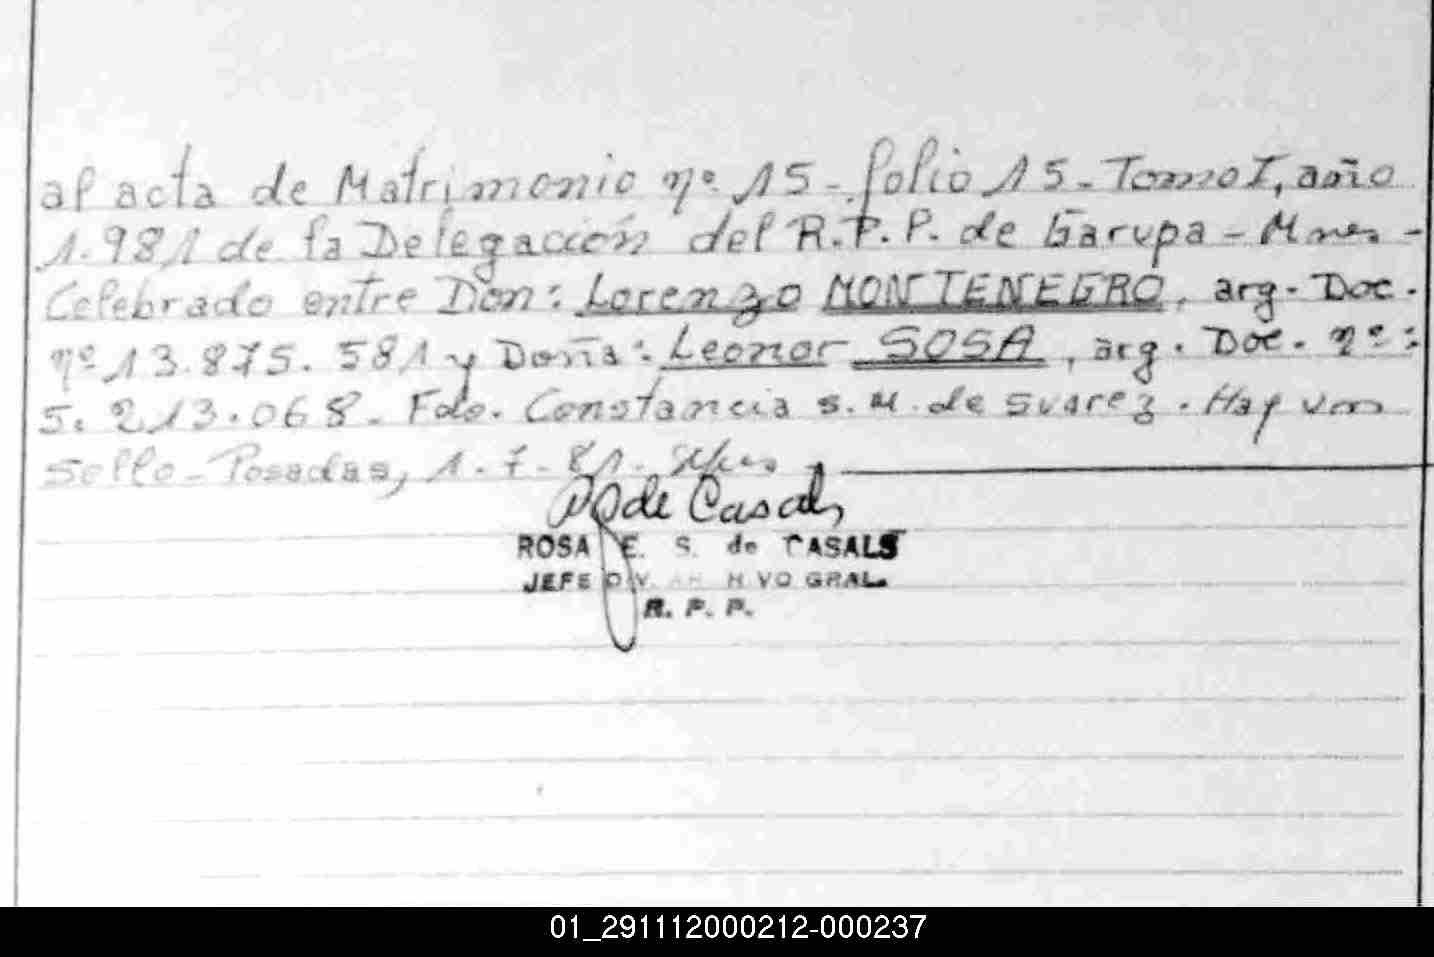 al acta de Matrimonio nº 15 - folio 15 - Tomo I, año
1.981 de la Delegación del R.P.P. de Garupa - Mnes -
Celebrado entre Don: Lorenzo MONTENEGRO, arg. Doc.
nº 13.875.581 y Doña: Leonor SOSA, arg. Doc. nº:
5.213.068 - Fdo. Constancia S. M. de Suarez. Hay un
Sello - Posadas, 1-7-81.
de Casals
ROSA E. S. de CASALS
JEFE DIV. ARCHIVO GRAL.
R. P. P.
01_291112000212-000237